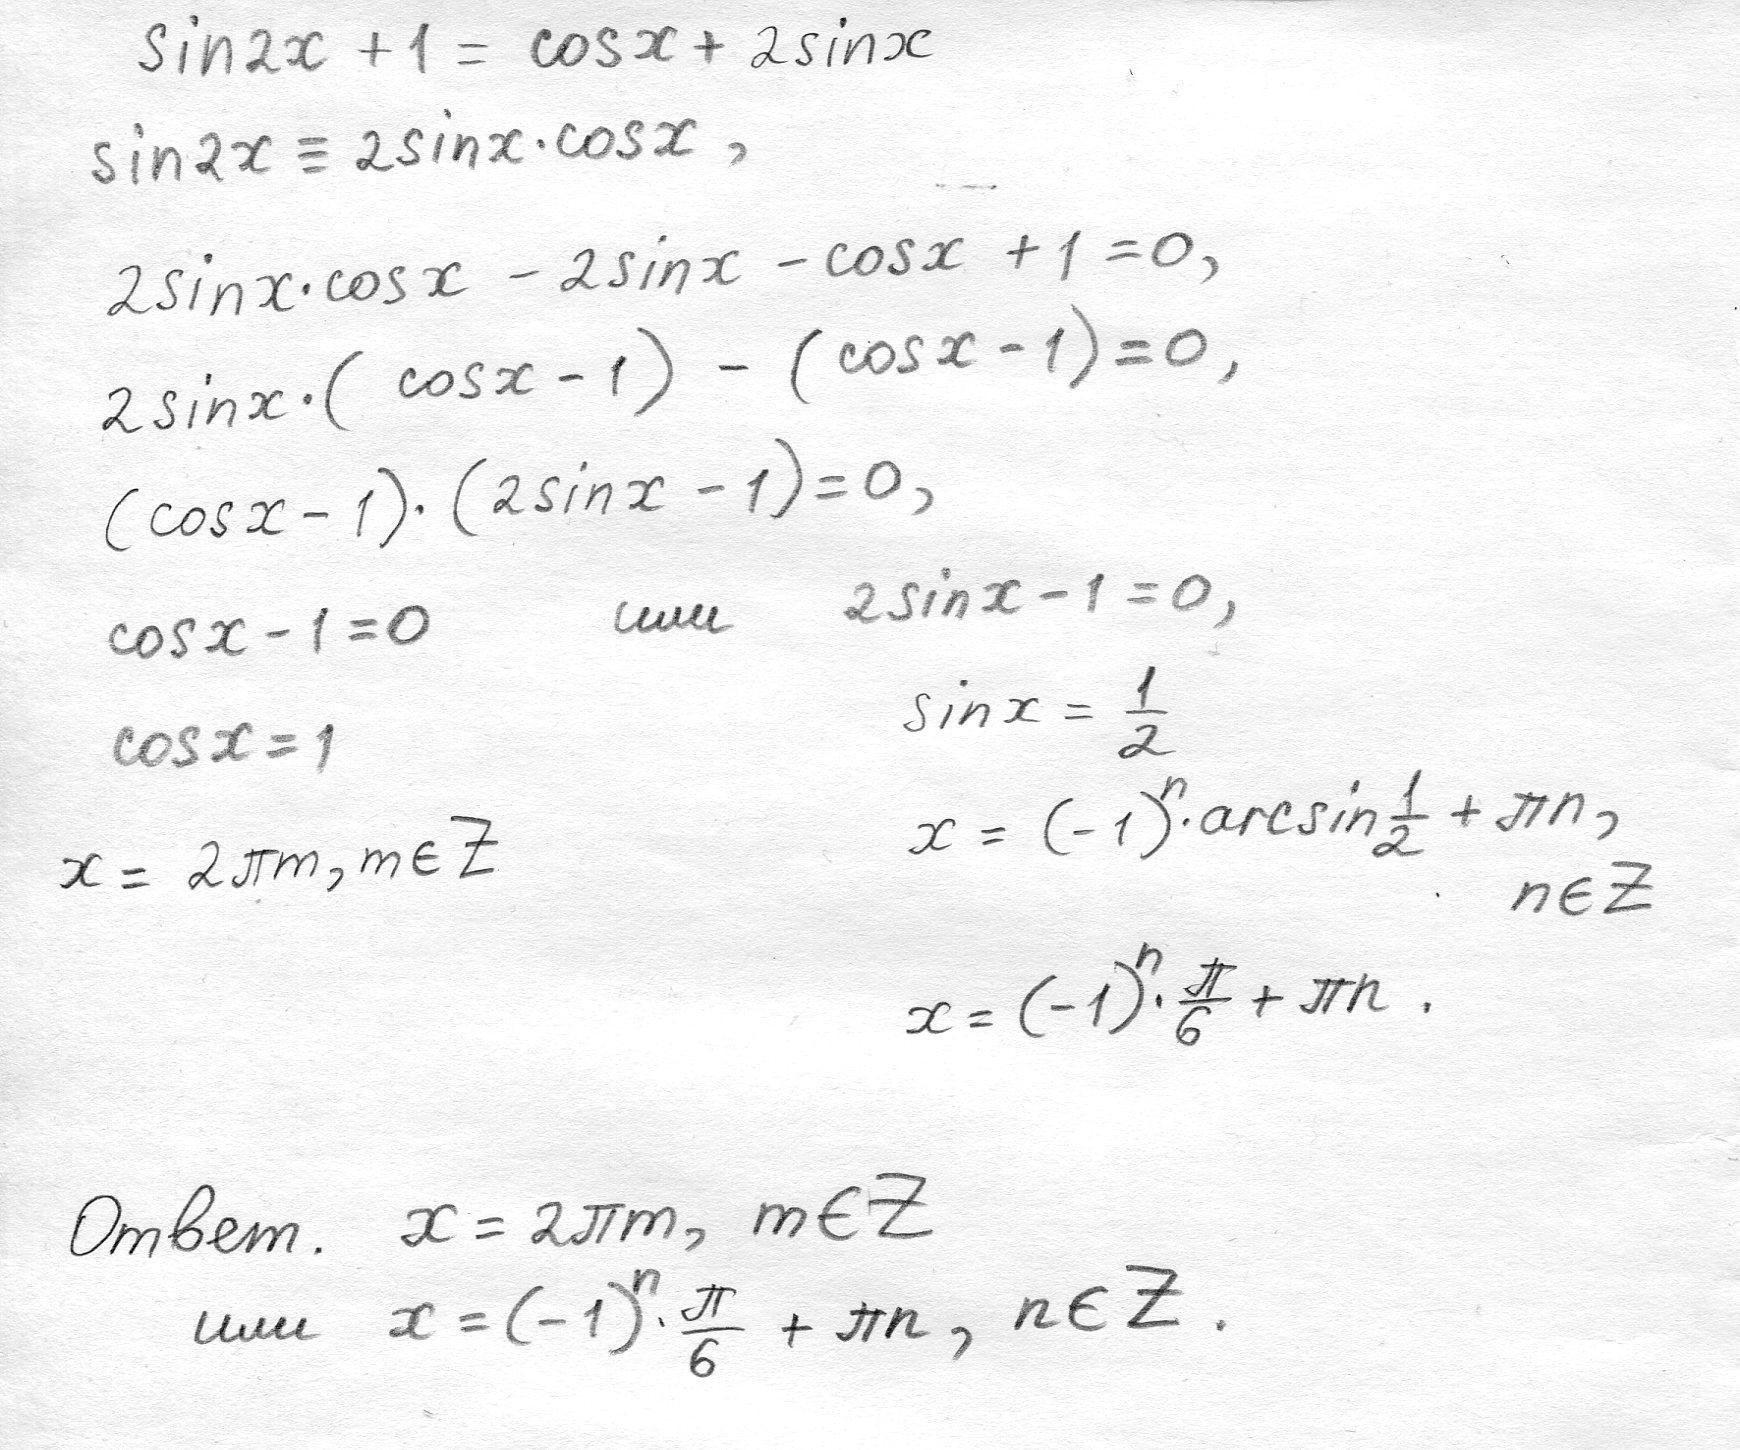 sin2x + 1 = cosx + 2sinx
sin2x ≡ 2sinx·cosx,
2sinx·cosx - 2sinx - cosx + 1 = 0,
2sinx·(cosx - 1) - (cosx - 1) = 0,
(cosx - 1)·(2sinx - 1) = 0,
cosx - 1 = 0 или 2sinx - 1 = 0,
sinx = 1/2
cosx = 1
x = (-1)^n·arcsin 1/2 + πn,
x = 2πm, m∈Z
n∈Z
x = (-1)^n·π/6 + πn.
Ответ. x = 2πm, m∈Z
или x = (-1)^n·π/6 + πn, n∈Z.